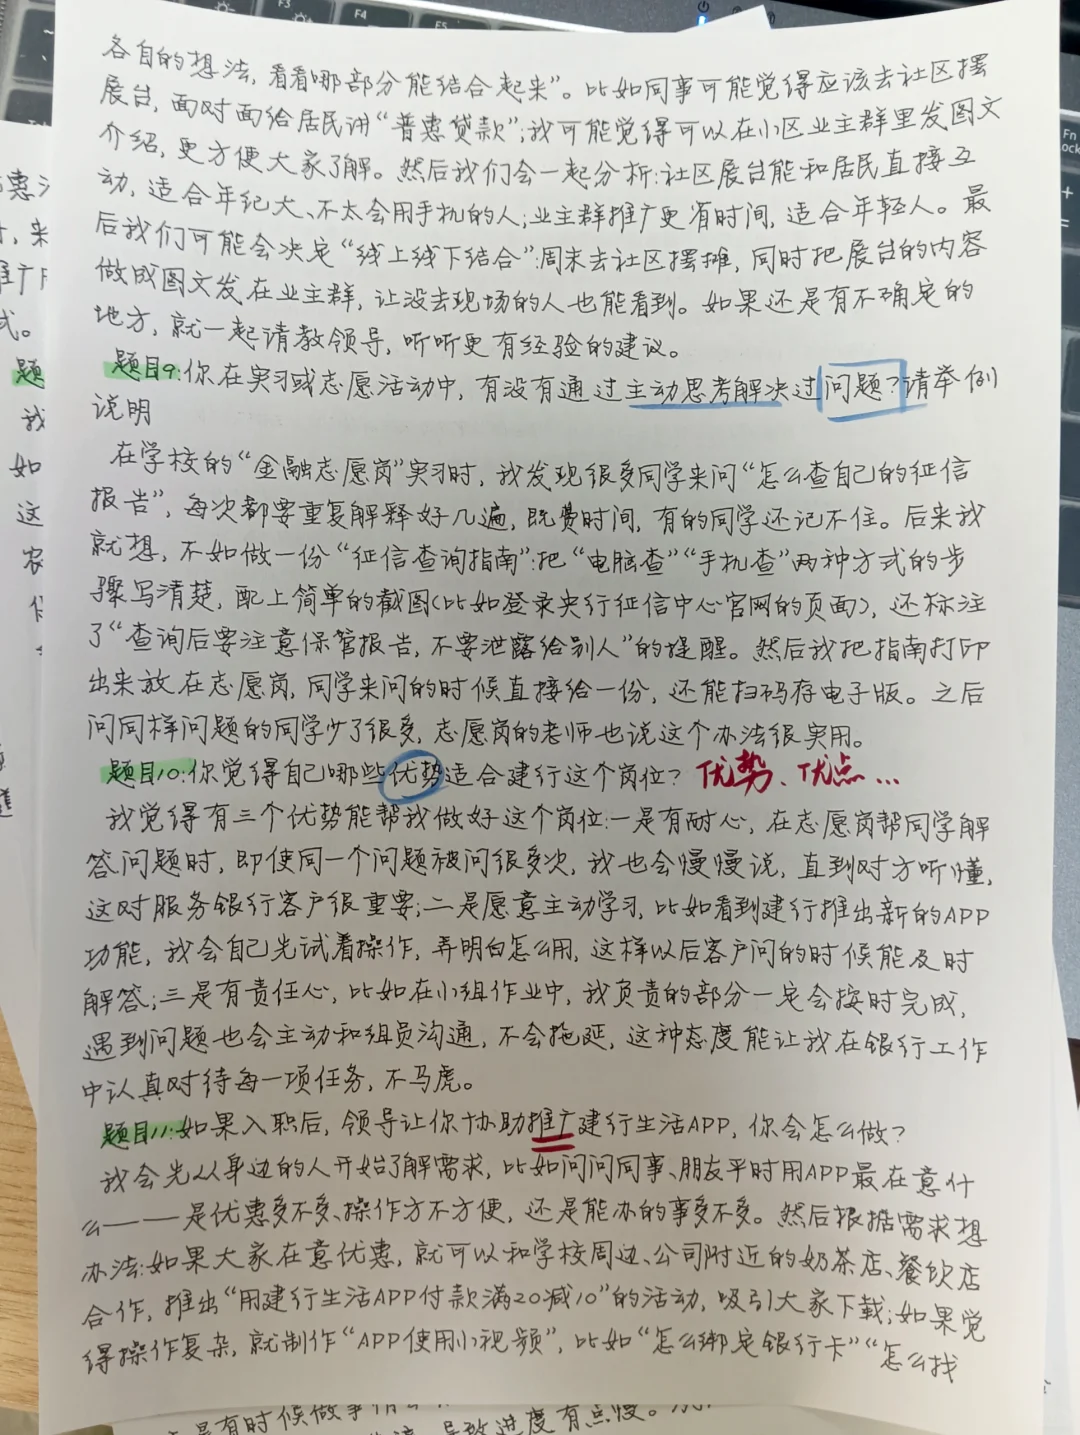 各自的想法,看看哪部分能结合起来”。比如同事可能觉得应该去社区摆
展台,面对面给居民讲“普惠贷款”;我可能觉得可以在小区业主群里发图文
介绍,更方便大家了解。然后我们会一起分析:社区展台能和居民直接互
动,适合年纪大、不太会用手机的人;业主群推广更省时间,适合年轻人。最
后我们可能会决定“线上线下结合”:周末去社区摆摊,同时把展台的内容
做成图文发在业主群,让没去现场的人也能看到。如果还是有不确定的
地方,就一起请教领导,听听更有经验的建议。
题目9:你在实习或志愿活动中,有没有通过主动思考解决过问题?请举例
说明
在学校的“金融志愿岗”实习时,我发现很多同学来问“怎么查自己的征信
报告”,每次都要重复解释好几遍,既费时间,有的同学还记不住。后来我
就想,不如做一份“征信查询指南”:把“电脑查”“手机查”两种方式的步
骤写清楚,配上简单的截图(比如登录央行征信中心官网的页面),还标注
了“查询后要注意保管报告,不要泄露给别人”的提醒。然后我把指南打印
出来放在志愿岗,同学来问的时候直接给一份,还能扫码存电子版。之后
问同样问题的同学少了很多,志愿岗的老师也说这个办法很实用。
题目10:你觉得自己哪些优势适合建行这个岗位? 优势、优点...
我觉得有三个优势能帮我做好这个岗位:一是有耐心,在志愿岗帮同学解
答问题时,即使同一个问题被问很多次,我也会慢慢说,直到对方听懂,
这对服务银行客户很重要;二是愿意主动学习,比如看到建行推出新的APP
功能,我会自己先试着操作,弄明白怎么用,这样以后客户问的时候能及时
解答;三是有责任心,比如在小组作业中,我负责的部分一定会按时完成,
遇到问题也会主动和组员沟通,不会拖延,这种态度能让我在银行工作
中认真对待每一项任务,不马虎。
题目11:如果入职后,领导让你协助推广建行生活APP,你会怎么做?
我会先从身边的人开始了解需求,比如问问同事、朋友平时用APP最在意什
么——是优惠多不多、操作方不方便,还是能办的事多不多。然后根据需求想
办法:如果大家在意优惠,就可以和学校周边、公司附近的奶茶店、餐饮店
合作,推出“用建行生活APP付款满20减10”的活动,吸引大家下载;如果觉
得操作复杂,就制作“APP使用小视频”,比如“怎么绑定银行卡”“怎么找